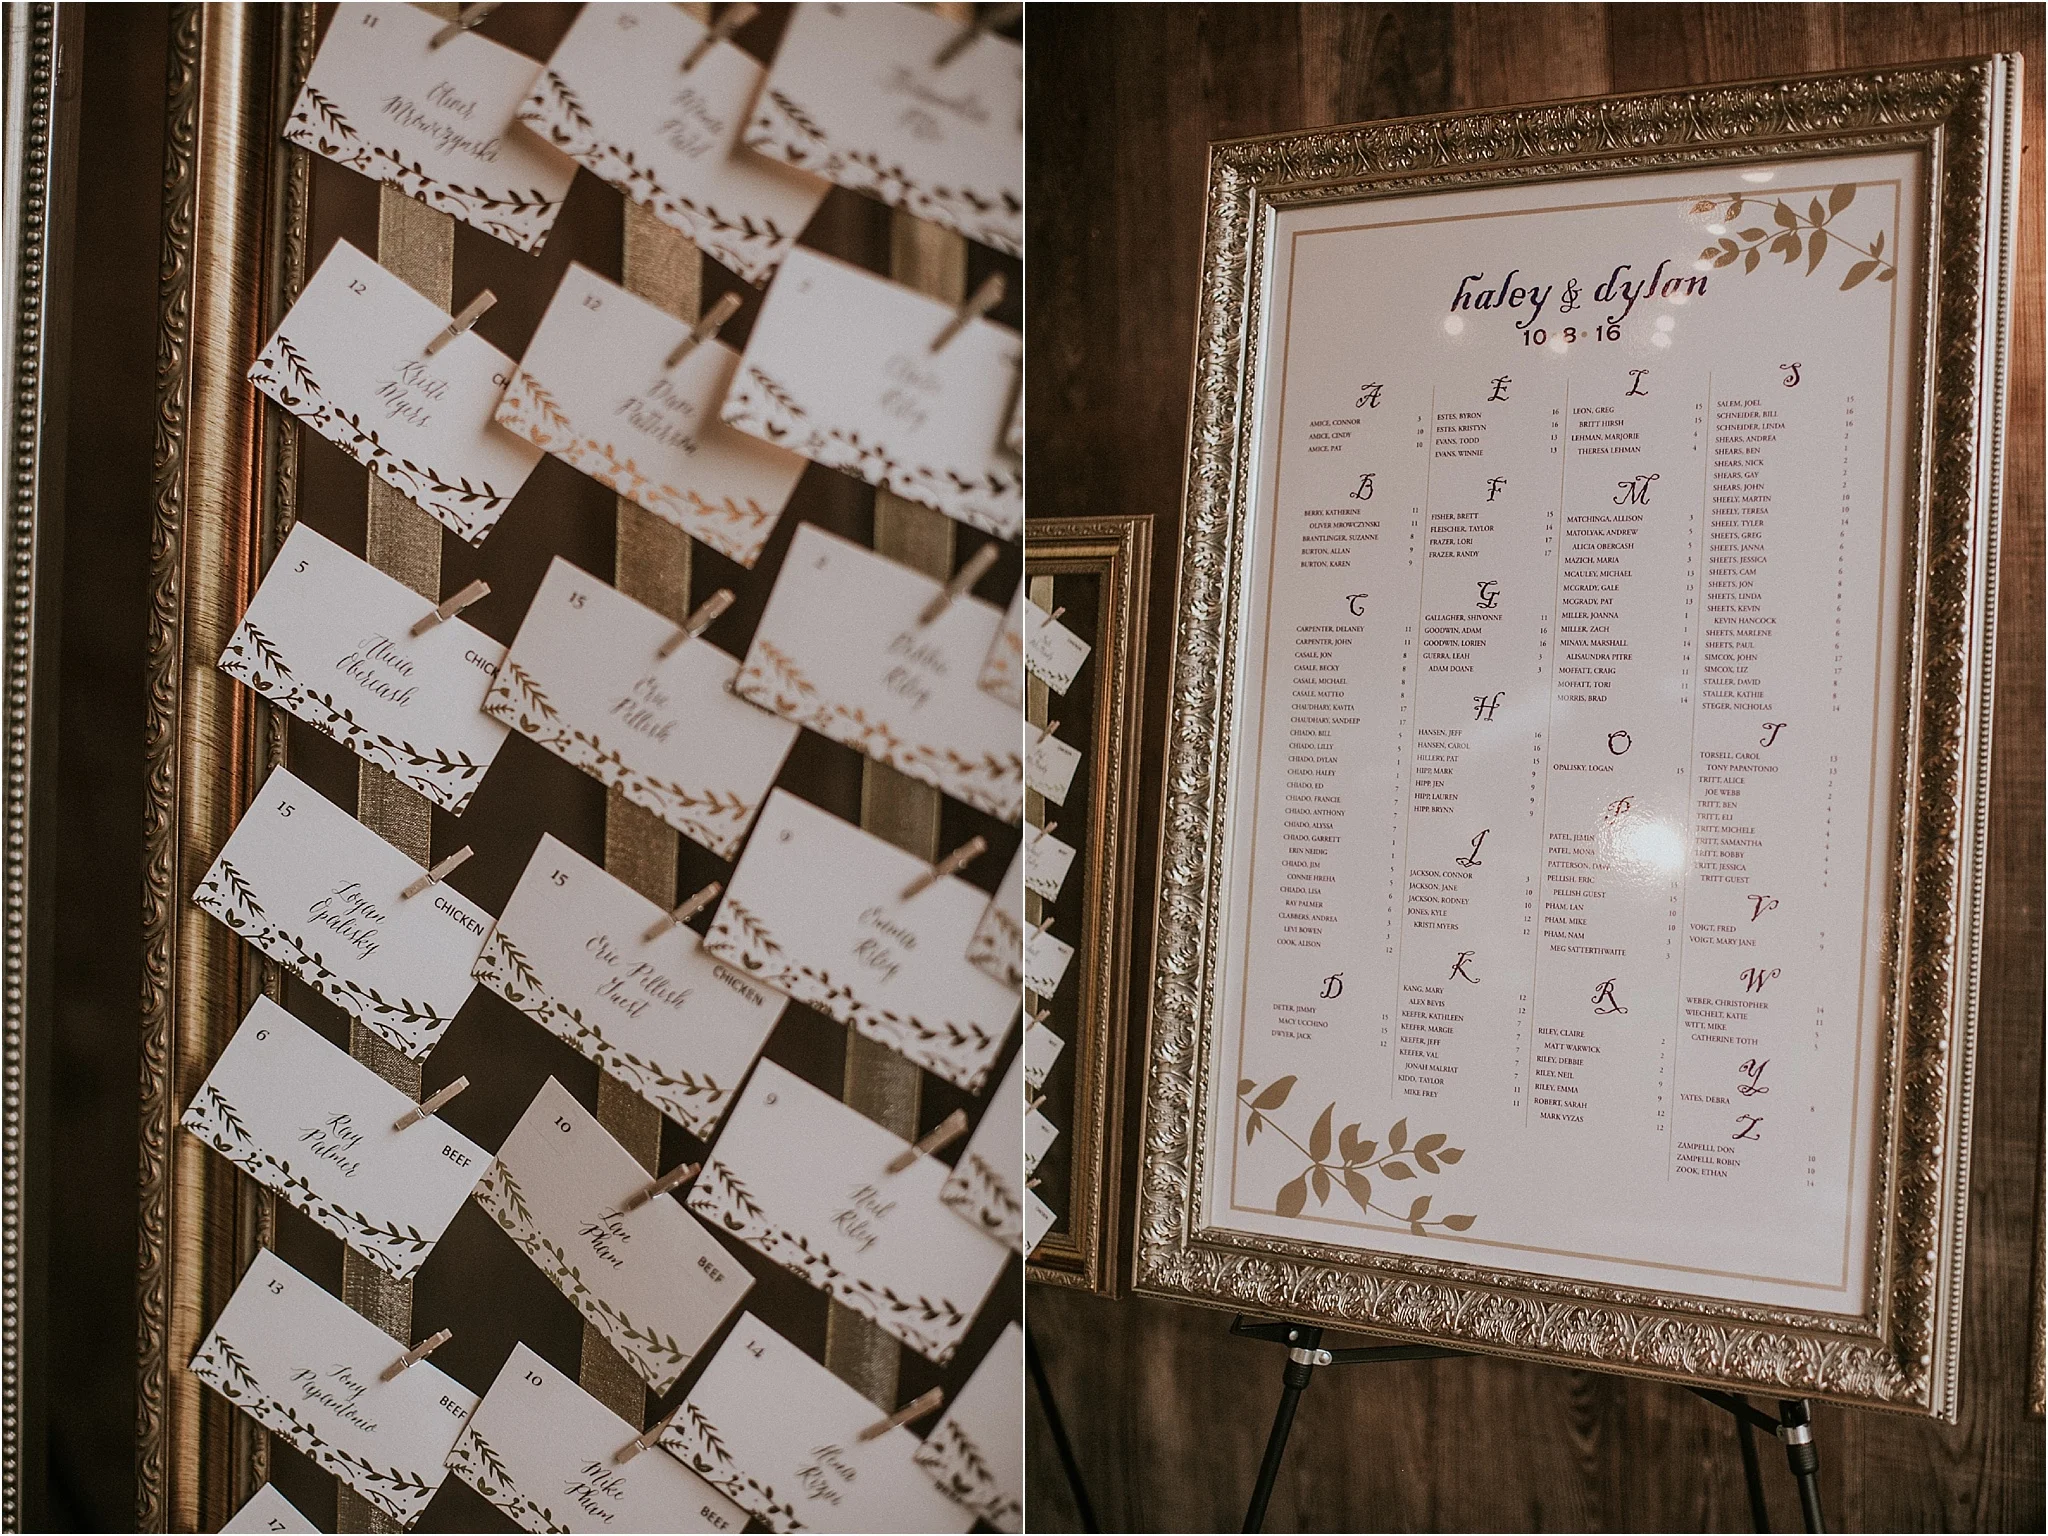 11
Oliver
Mrowczynski
12
Kristi
Myers
12
Dom
Patterson
5
Alicia
Obercash
15
Eric
Pellish
15
Logan
Opalisky
CHICKEN
15
Eric Pellish
Guest
CHICKEN
9
Emma
Riley
6
Ray
Palmer
BEEF
10
Lan
Pham
BEEF
9
Neil
Riley
13
Tony
Papantonio
BEEF
10
Mike
Pham
BEEF
14
17
haley & dylan
10 • 8 • 16
A
AMICE, CONNOR 3
AMICE, CINDY 10
AMICE, PAT 10
B
BERRY, KATHERINE 11
OLIVER MROWCZYNSKI 11
BRANTLINGER, SUZANNE 8
BURTON, ALLAN 9
BURTON, KAREN 9
C
CARPENTER, DELANEY 11
CARPENTER, JOHN 11
CASALE, JON 8
CASALE, BECKY 8
CASALE, MICHAEL 8
CASALE, MATTEO 8
CHAUDHARY, KAVITA 17
CHAUDHARY, SANDEEP 17
CHIADO, BILL 5
CHIADO, LILLY 5
CHIADO, DYLAN 1
CHIADO, HALEY 1
CHIADO, ED 7
CHIADO, FRANCIE 7
CHIADO, ANTHONY 7
CHIADO, ALYSSA 7
CHIADO, GARRETT 1
ERIN NEIDIG 1
CHIADO, JIM 5
CONNIE HREHA 5
CHIADO, LISA 6
RAY PALMER 6
CLABBERS, ANDREA 3
LEVI BOWEN 3
COOK, ALISON 12
D
DETER, JIMMY 15
MACY UCCHINO 15
DWYER, JACK 12
E
ESTES, BYRON 16
ESTES, KRISTYN 16
EVANS, TODD 13
EVANS, WINNIE 13
F
FISHER, BRETT 15
FLEISCHER, TAYLOR 14
FRAZER, LORI 17
FRAZER, RANDY 17
G
GALLAGHER, SHIVONNE 11
GOODWIN, ADAM 16
GOODWIN, LORIEN 16
GUERRA, LEAH 3
ADAM DOANE 3
H
HANSEN, JEFF 16
HANSEN, CAROL 16
HILLERY, PAT 15
HIPP, MARK 9
HIPP, JEN 9
HIPP, LAUREN 9
HIPP, BRYNN 9
J
JACKSON, CONNOR 3
JACKSON, JANE 10
JACKSON, RODNEY 10
JONES, KYLE 12
KRISTI MYERS 12
K
KANG, MARY 12
ALEX BEVIS 12
KEEFER, KATHLEEN 7
KEEFER, MARGIE 7
KEEFER, JEFF 7
KEEFER, VAL 7
JONAH MALRIAT 7
KIDD, TAYLOR 11
MIKE FREY 11
L
LEON, GREG 15
BRITT HIRSH 15
LEHMAN, MARJORIE 4
THERESA LEHMAN 4
M
MATCHINGA, ALLISON 3
MATOLYAK, ANDREW 5
ALICIA OBERCASH 5
MAZICH, MARIA 3
MCAULEY, MICHAEL 13
MCGRADY, GALE 13
MCGRADY, PAT 13
MILLER, JOANNA 1
MILLER, ZACH 1
MINAYA, MARSHALL 14
ALISAUNDRA PITRE 14
MOFFATT, CRAIG 11
MOFFATT, TORI 11
MORRIS, BRAD 14
O
OPALISKY, LOGAN 15
P
PATEL, JEMIN
PATEL, MONA
PATTERSON,
PELLISH, ERIC 15
PELLISH GUEST 15
PHAM, LAN 10
PHAM, MIKE 10
PHAM, NAM 3
MEG SATTERTHWAITE 3
R
RILEY, CLAIRE 2
MATT WARWICK 2
RILEY, DEBBIE 2
RILEY, NEIL 9
RILEY, EMMA 9
ROBERT, SARAH 12
MARK VYZAS 12
S
SALEM, JOEL 15
SCHNEIDER, BILL 16
SCHNEIDER, LINDA 16
SHEARS, ANDREA 2
SHEARS, BEN 1
SHEARS, NICK 2
SHEARS, GAY 2
SHEARS, JOHN 2
SHEELY, MARTIN 10
SHEELY, TERESA 10
SHEELY, TYLER 14
SHEETS, GREG 6
SHEETS, JANNA 6
SHEETS, JESSICA 6
SHEETS, CAM 6
SHEETS, JON 8
SHEETS, LINDA 8
SHEETS, KEVIN 6
KEVIN HANCOCK 6
SHEETS, MARLENE 6
SHEETS, PAUL 6
SIMCOX, JOHN 17
SIMCOX, LIZ 17
STALLER, DAVID 8
STALLER, KATHIE 8
STEGER, NICHOLAS 14
T
TORSELL, CAROL 13
TONY PAPANTONIO 13
TRITT, ALICE 2
JOE WEBB 2
TRITT, BEN 4
TRITT, ELI 4
TRITT, MICHELE 4
TRITT, SAMANTHA 4
TRITT, BOBBY 4
TRITT, JESSICA 4
TRITT GUEST 4
V
VOIGT, FRED 9
VOIGT, MARY JANE 9
W
WEBER, CHRISTOPHER 14
WIECHELT, KATIE 11
WITT, MIKE 5
CATHERINE TOTH 5
Y
YATES, DEBRA 8
Z
ZAMPELLI, DON 10
ZAMPELLI, ROBIN 10
ZOOK, ETHAN 14